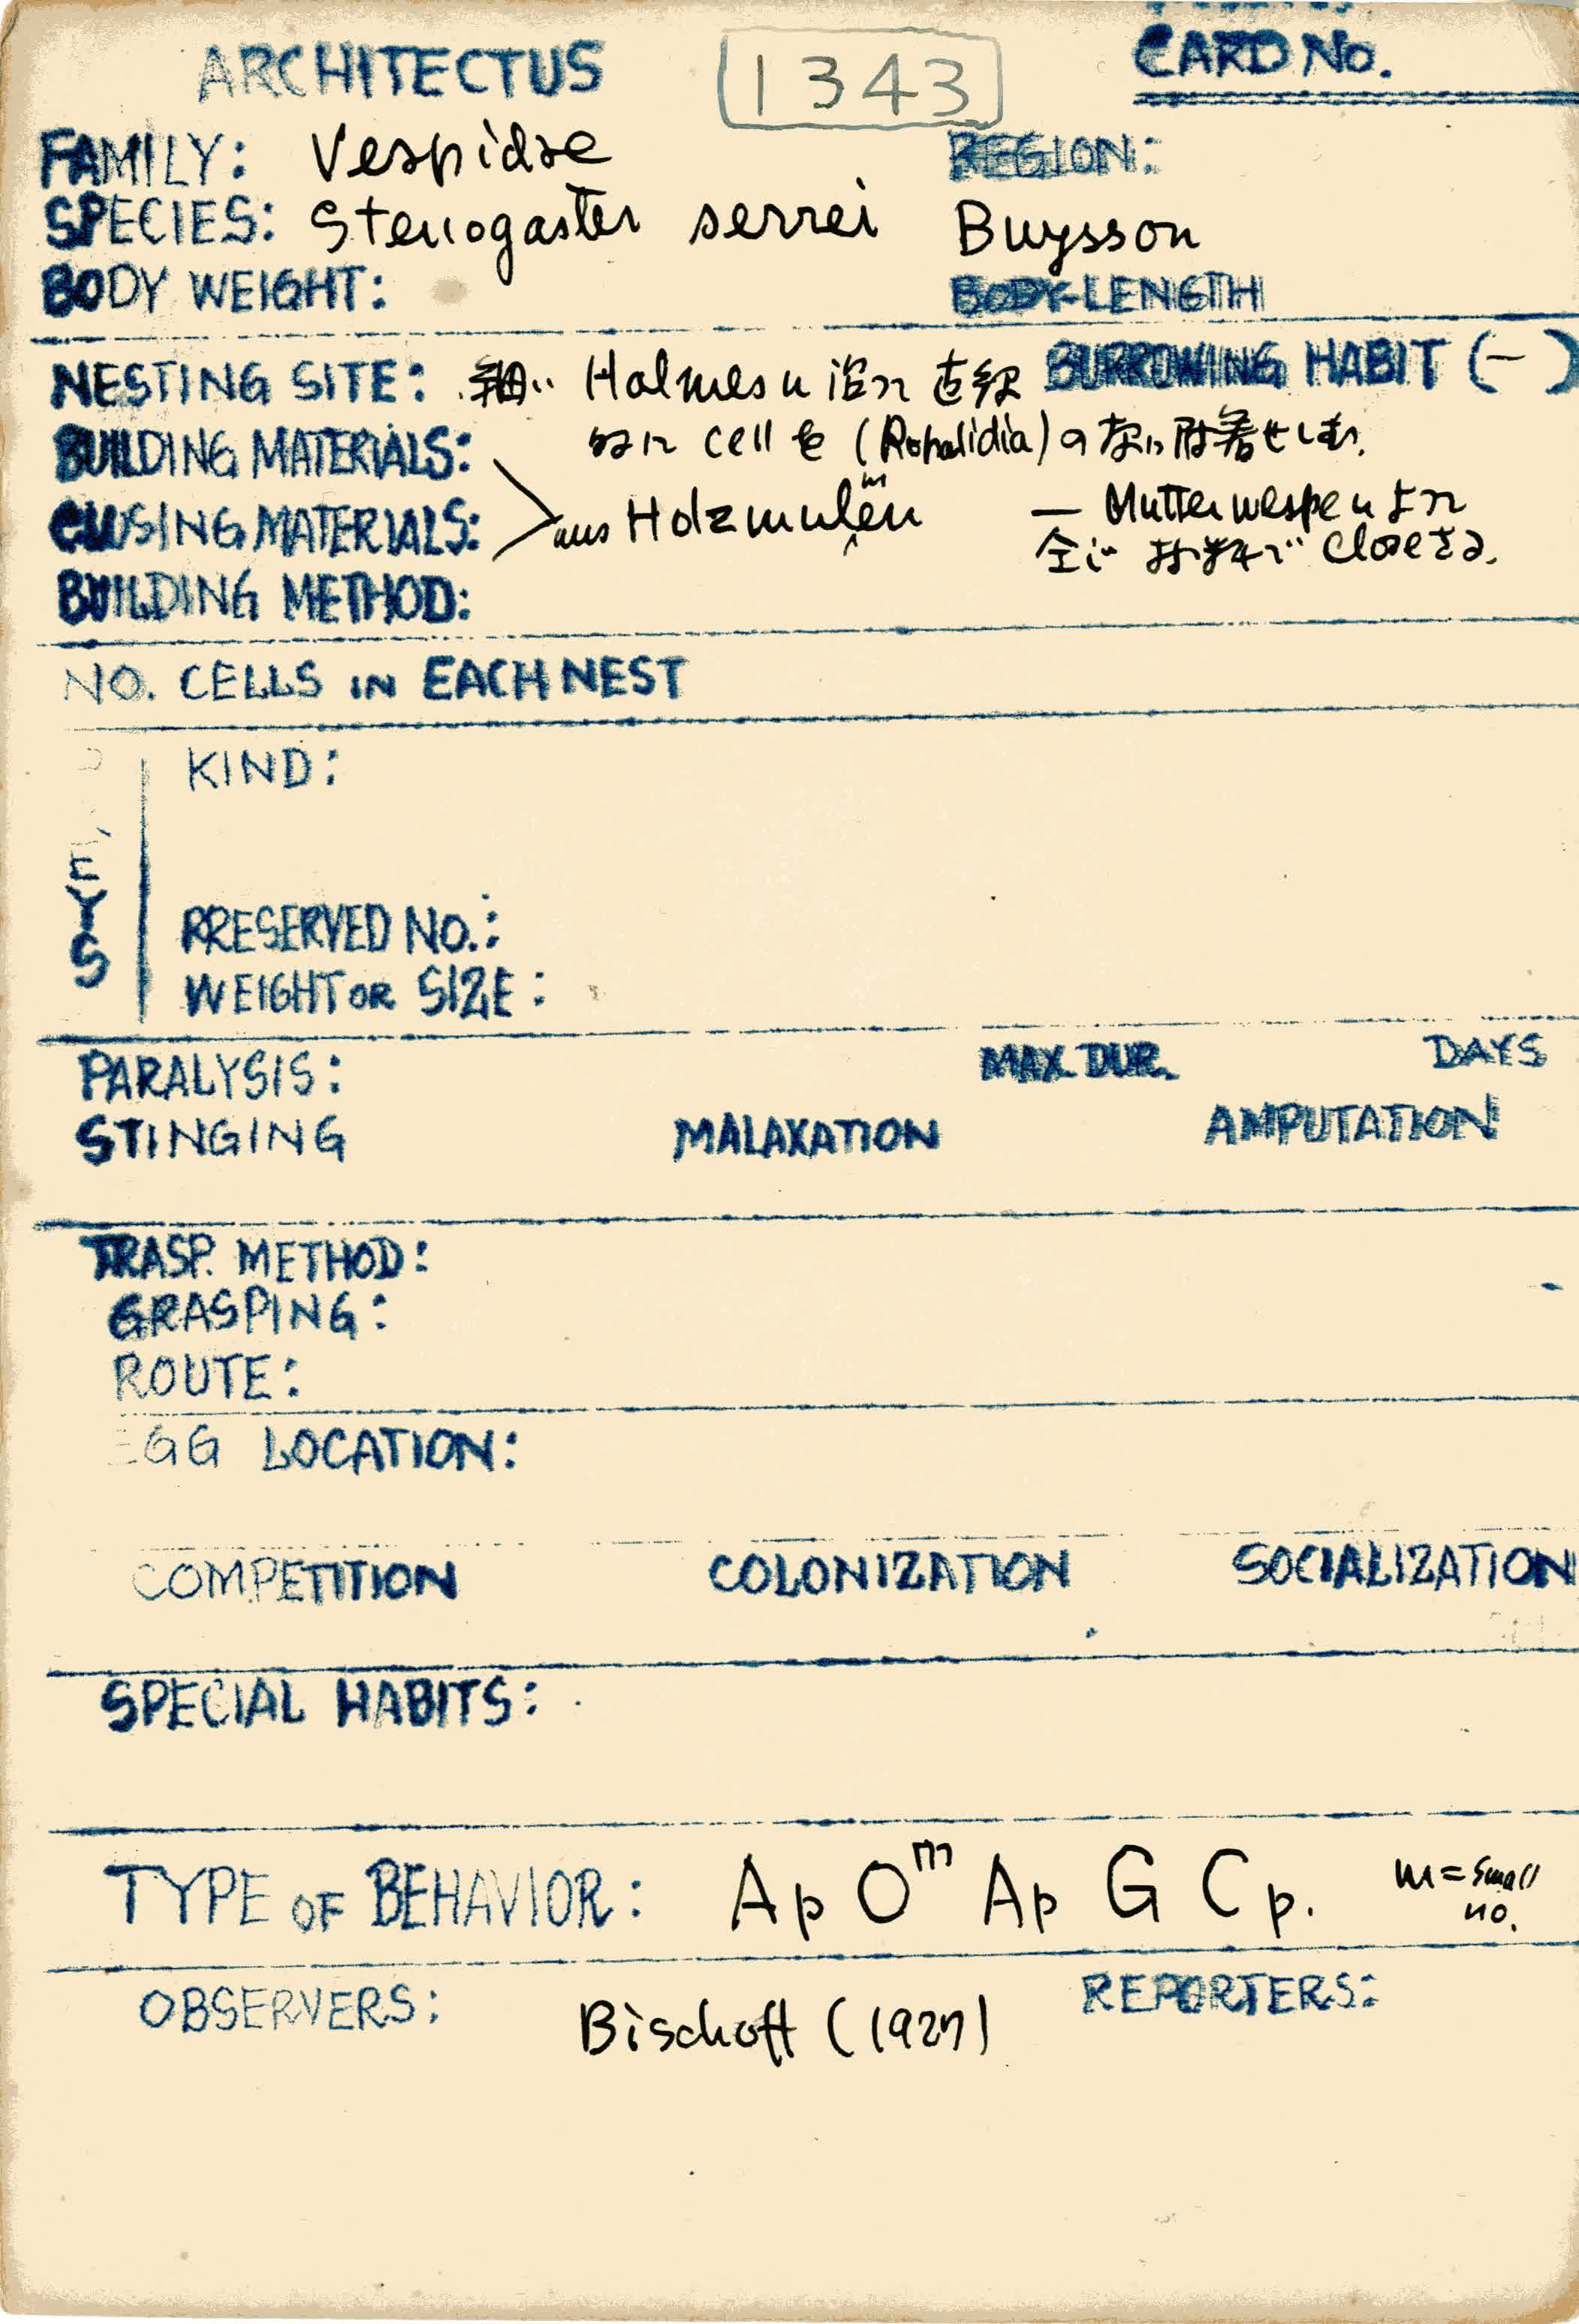 ARCHITECTUS 1343 CARD No.
FAMILY: Vespidae REGION:
SPECIES: Stenogaster serrei Buysson
BODY WEIGHT: BODY LENGTH
NESTING SITE: 細い Halmes に沿って直線 BURROWING HABIT (-)
的に cell を (Ropalidia) の 如く附着せしむ.
BUILDING MATERIALS:
CLOSING MATERIALS: aus Holzmulm — Mutterwespe によって
全じ材料で close さる.
BUILDING METHOD:
NO. CELLS IN EACH NEST
EYS
KIND:
PRESERVED NO.:
WEIGHT OR SIZE:
PARALYSIS: MAX. DUR. DAYS
STINGING MALAXATION AMPUTATION
TRASP. METHOD:
GRASPING:
ROUTE:
EGG LOCATION:
COMPETITION COLONIZATION SOCIALIZATION
SPECIAL HABITS:
TYPE OF BEHAVIOR: Ap O^m Ap G Cp. m = small
no.
OBSERVERS: Bischoff (1927) REPORTERS: